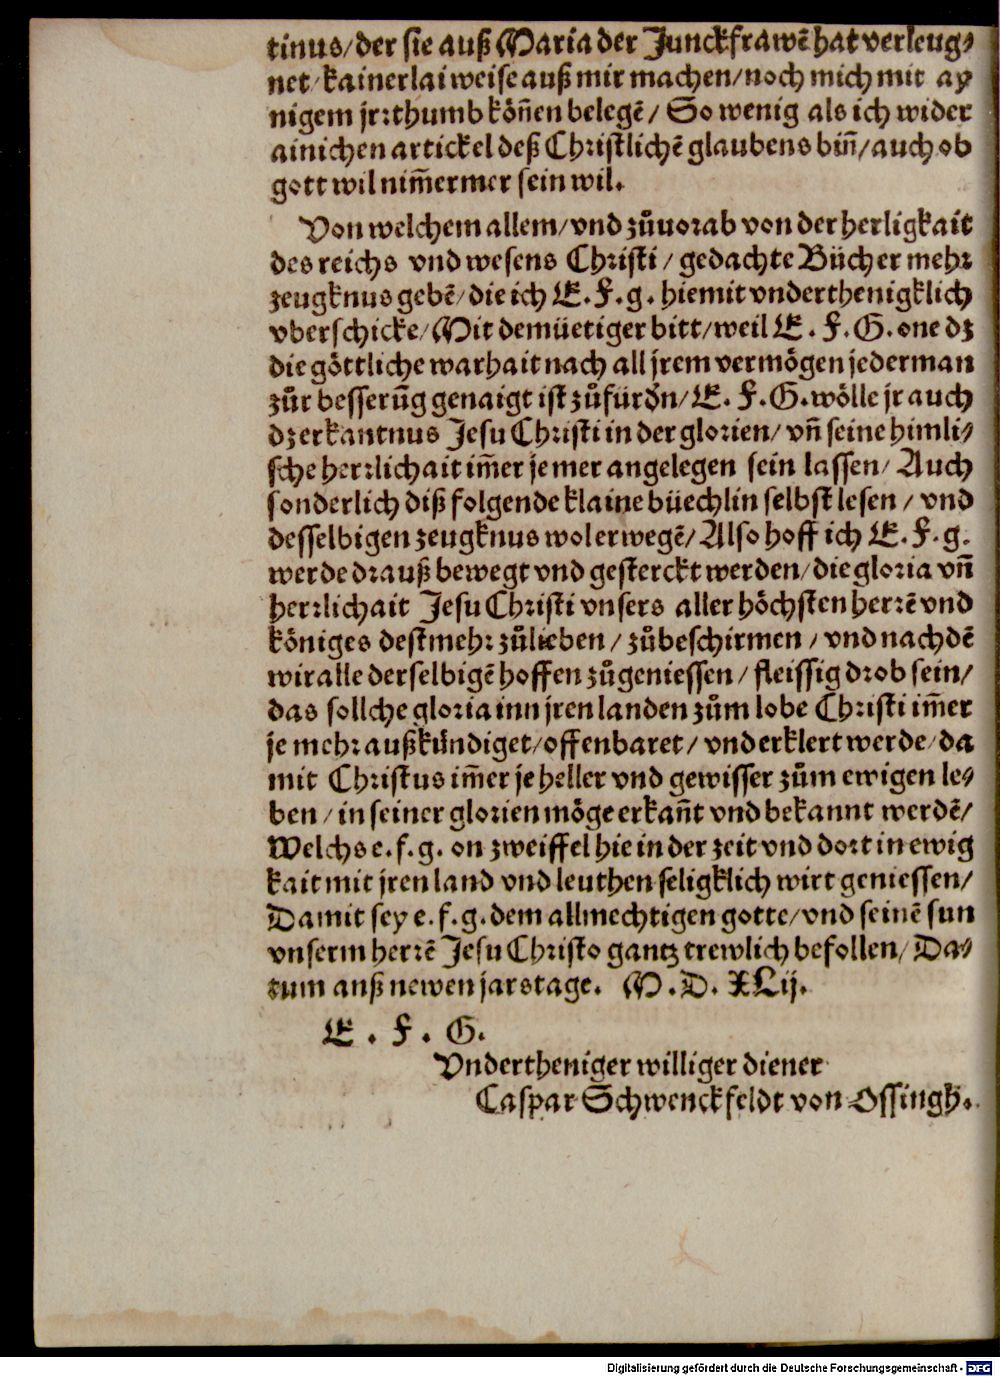 tinus/ der sie auß Maria der Junckfrawẽ hat verleug⸗
net/ kainerlai weise auß mir machen/ noch mich mit ay
nigem jrꝛthumb kön̄en belegẽ/ So wenig als ich wider
ainichen artickel deß Christlichẽ glaubens bin̄/ auch ob
gott wil nim̄ermer sein wil.
Von welchem allem/ vnd zůuoꝛab von der herligkait
des reichs vnd wesens Chꝛisti/ gedachte Bücher mehꝛ
zeugknus gebẽ/ die ich E. F. g. hiemit vnderthenigklich
vberschicke/ Mit demüetiger bitt/ weil E. F. G. one dz
die göttliche warhait nach all jrem vermögen jederman
zůr besserūg genaigt ist zůfürdn̄/ E. F. G. wölle jr auch
dz erkantnus Jesu Chꝛisti in der gloꝛien/ vn̄ seine himli⸗
sche herꝛlichait im̄er je mer angelegen sein lassen/ Auch
sonderlich diß folgende klaine büechlin selbst lesen/ vnd
desselbigen zeugknus wol erwegẽ/ Also hoff ich E. F. g.
werde dꝛauß bewegt vnd gesterckt werden/ die gloꝛia vn̄
herꝛlichait Jesu Chꝛisti vnsers aller höchsten herrẽ vnd
königes destmehꝛ zůlieben/ zůbeschirmen/ vnd nachdẽ
wir alle derselbigẽ hoffen zůgeniessen/ fleissig dꝛob sein/
das sollche gloꝛia inn jren landen zům lobe Chꝛisti im̄er
je mehꝛ außkündiget/ offenbaret/ vnd erklert werde/ da
mit Chꝛistus im̄er je heller vnd gewisser zům ewigen le⸗
ben/ in seiner gloꝛien möge erkan̄t vnd bekannt werdẽ/
Welchs e. f. g. on zweiffel hie in der zeit vnd doꝛt in ewig
kait mit jren land vnd leuthen seligklich wirt geniessen/
Damit sey e. f. g. dem allmechtigen gotte/ vnd seinẽ sun
vnserm herꝛẽ Jesu Chꝛisto gantz trewlich befollen/ Da⸗
tum anß newen jarstage. M. D. XLij.
E. F. G.
Vndertheniger williger diener
Caspar Schwenckfeldt von Ossingk.
Digitalisierung gefördert durch die Deutsche Forschungsgemeinschaft - DFG